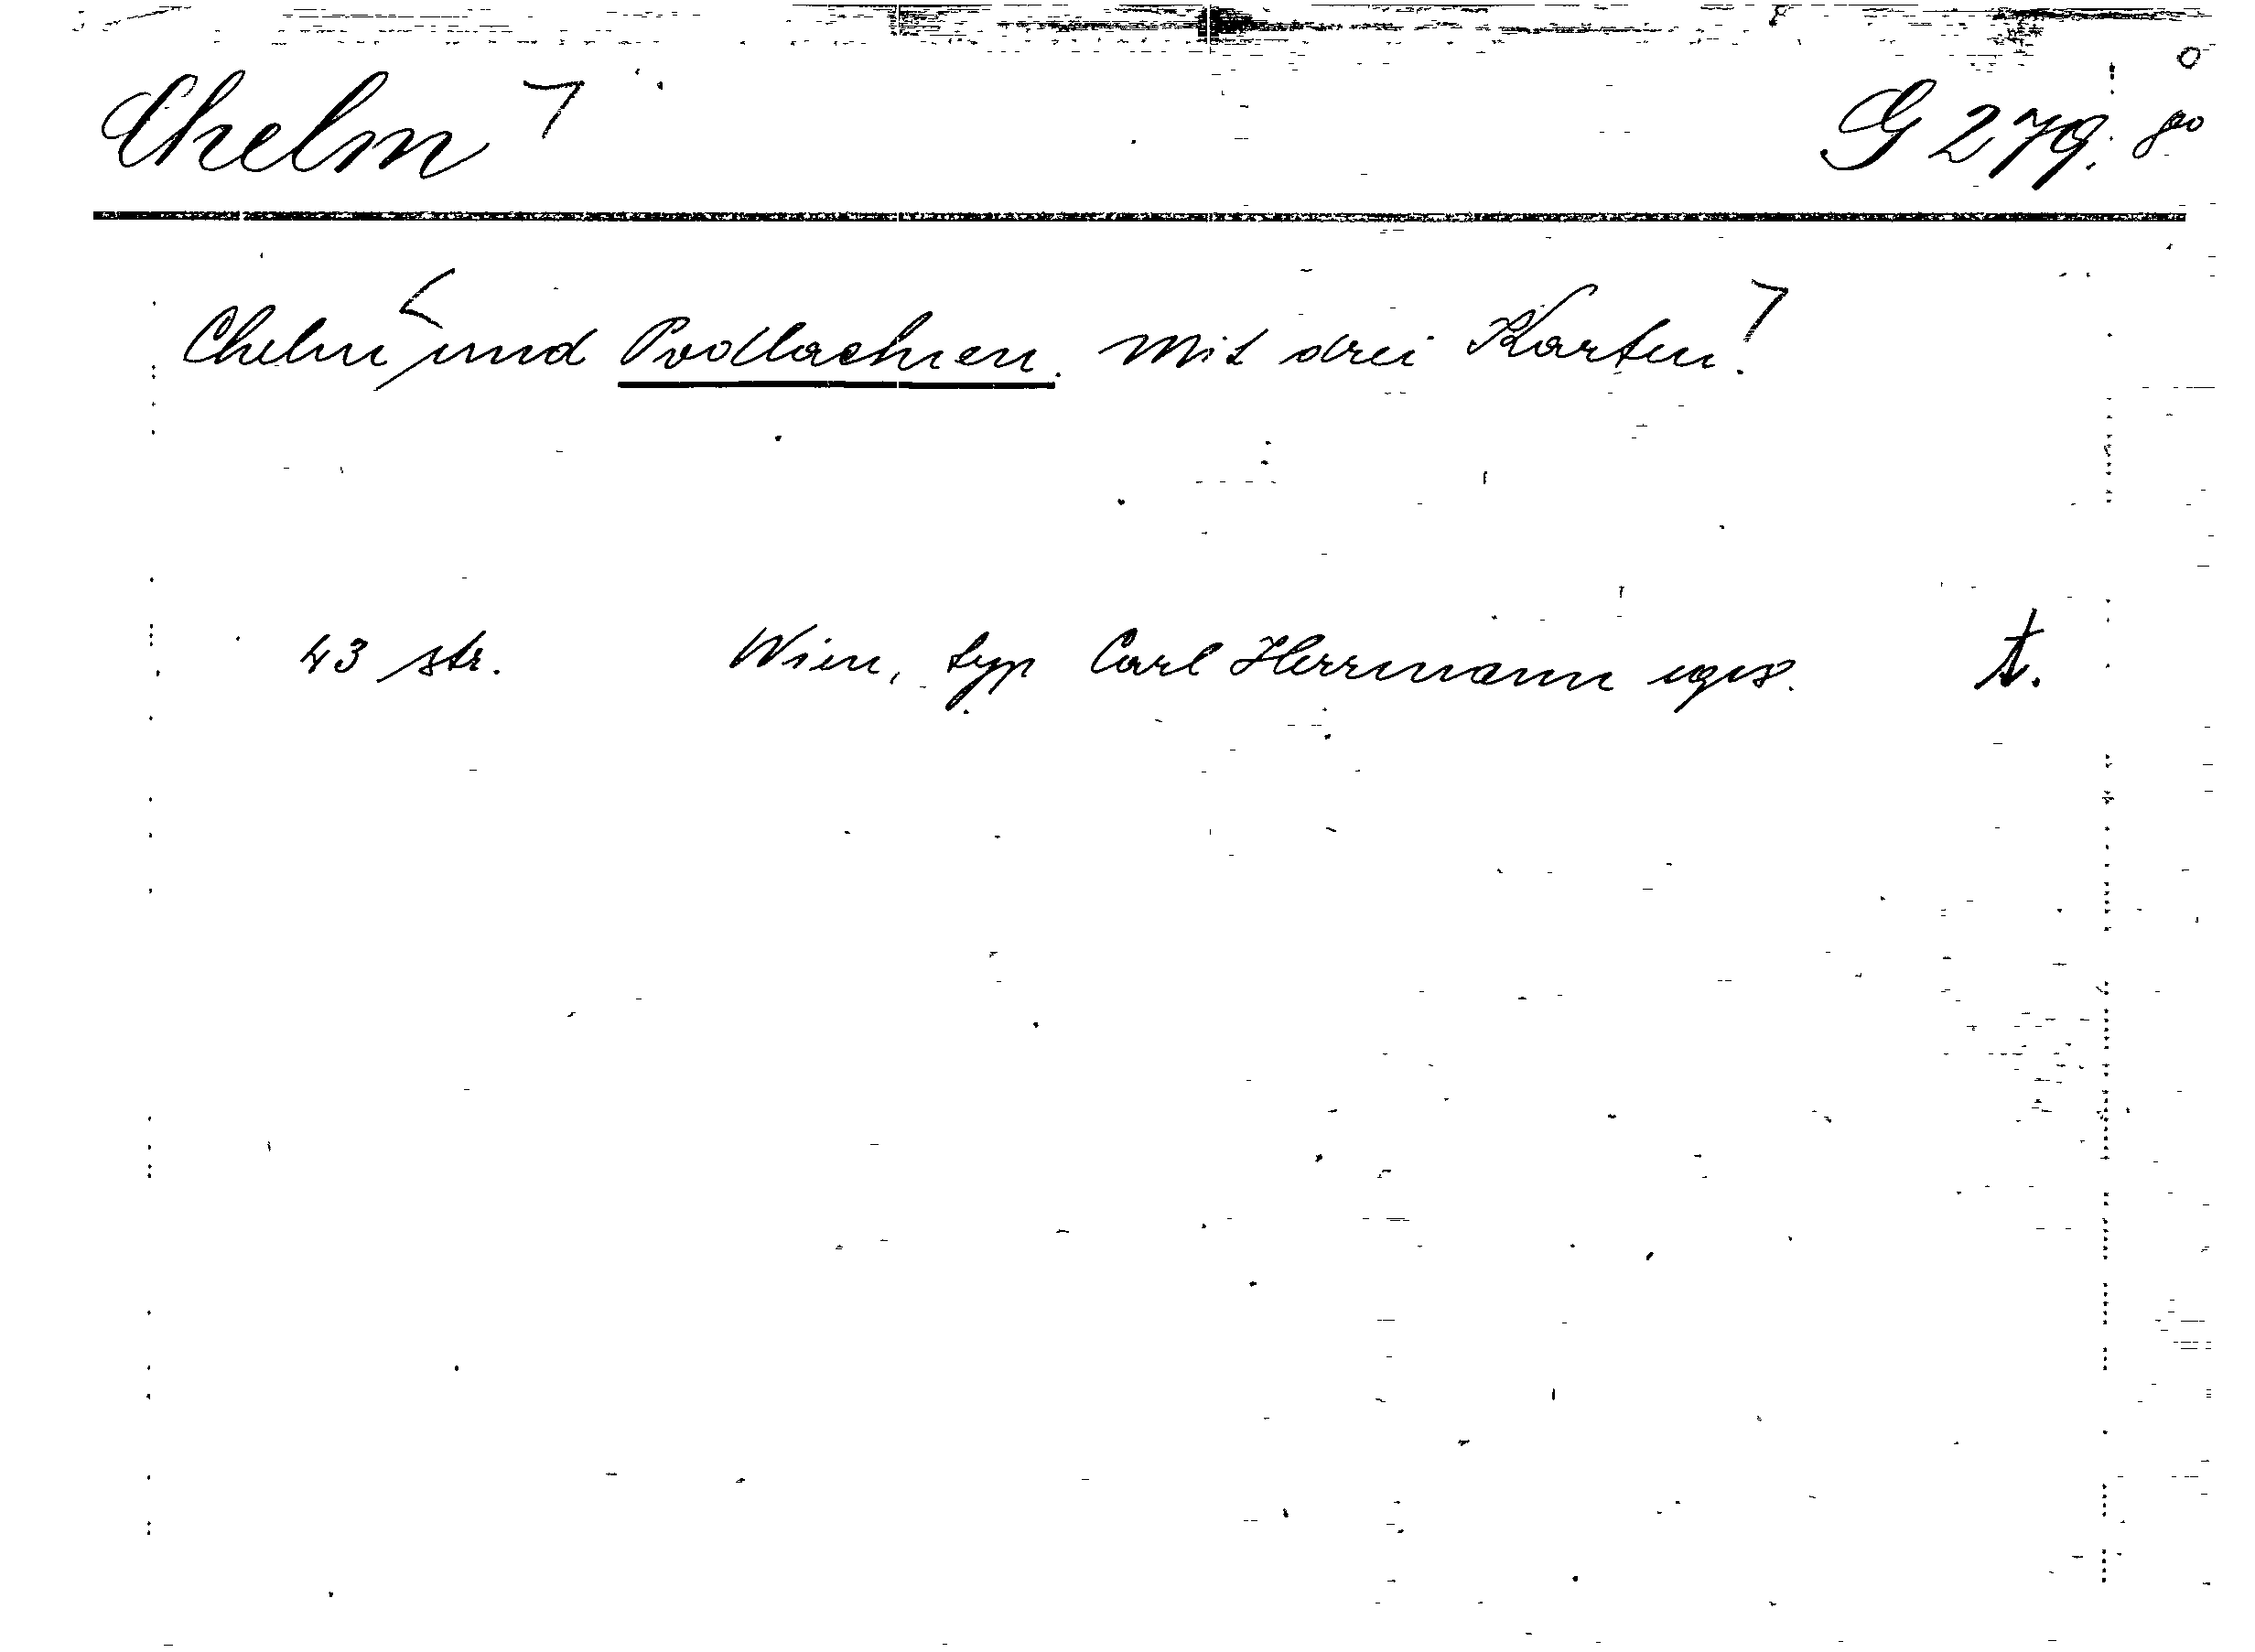 Chelm G 279. 8°
Chelm und Podlachien. Mit drei Karten.
43 str. Wien, typ Carl Herrmann
t.